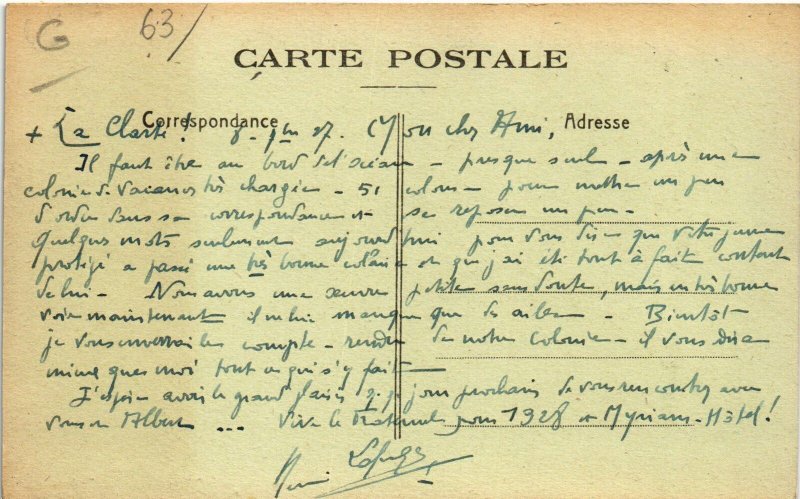 G 63/
CARTE POSTALE
Correspondance
Adresse
+ La Clarté! 8 - 7bre 27. Mon cher Ami,
Il faut être au bord de l'océan - presque seul - après une
colonie de vacances très chargée - 51 colons - pour mettre un peu
d'ordre dans sa correspondance et se reposer un peu -
Quelques mots seulement aujourd'hui pour vous dire que votre jeune
protégé a passé une très bonne colonie et que j'ai été tout à fait content
de lui - Nous avons une œuvre petite sans doute, mais en très bonne
voie maintenant il ne lui manque que des ailes - Bientôt
je vous enverrai le compte-rendu de notre Colonie - il vous dira
mieux que moi tout ce qui s'y fait -
J'espère avoir le grand plaisir un jour prochain de vous rencontrer avec
vous Albert ... Vive le Fraternel pour 1928 et Myriam-Hôtel!